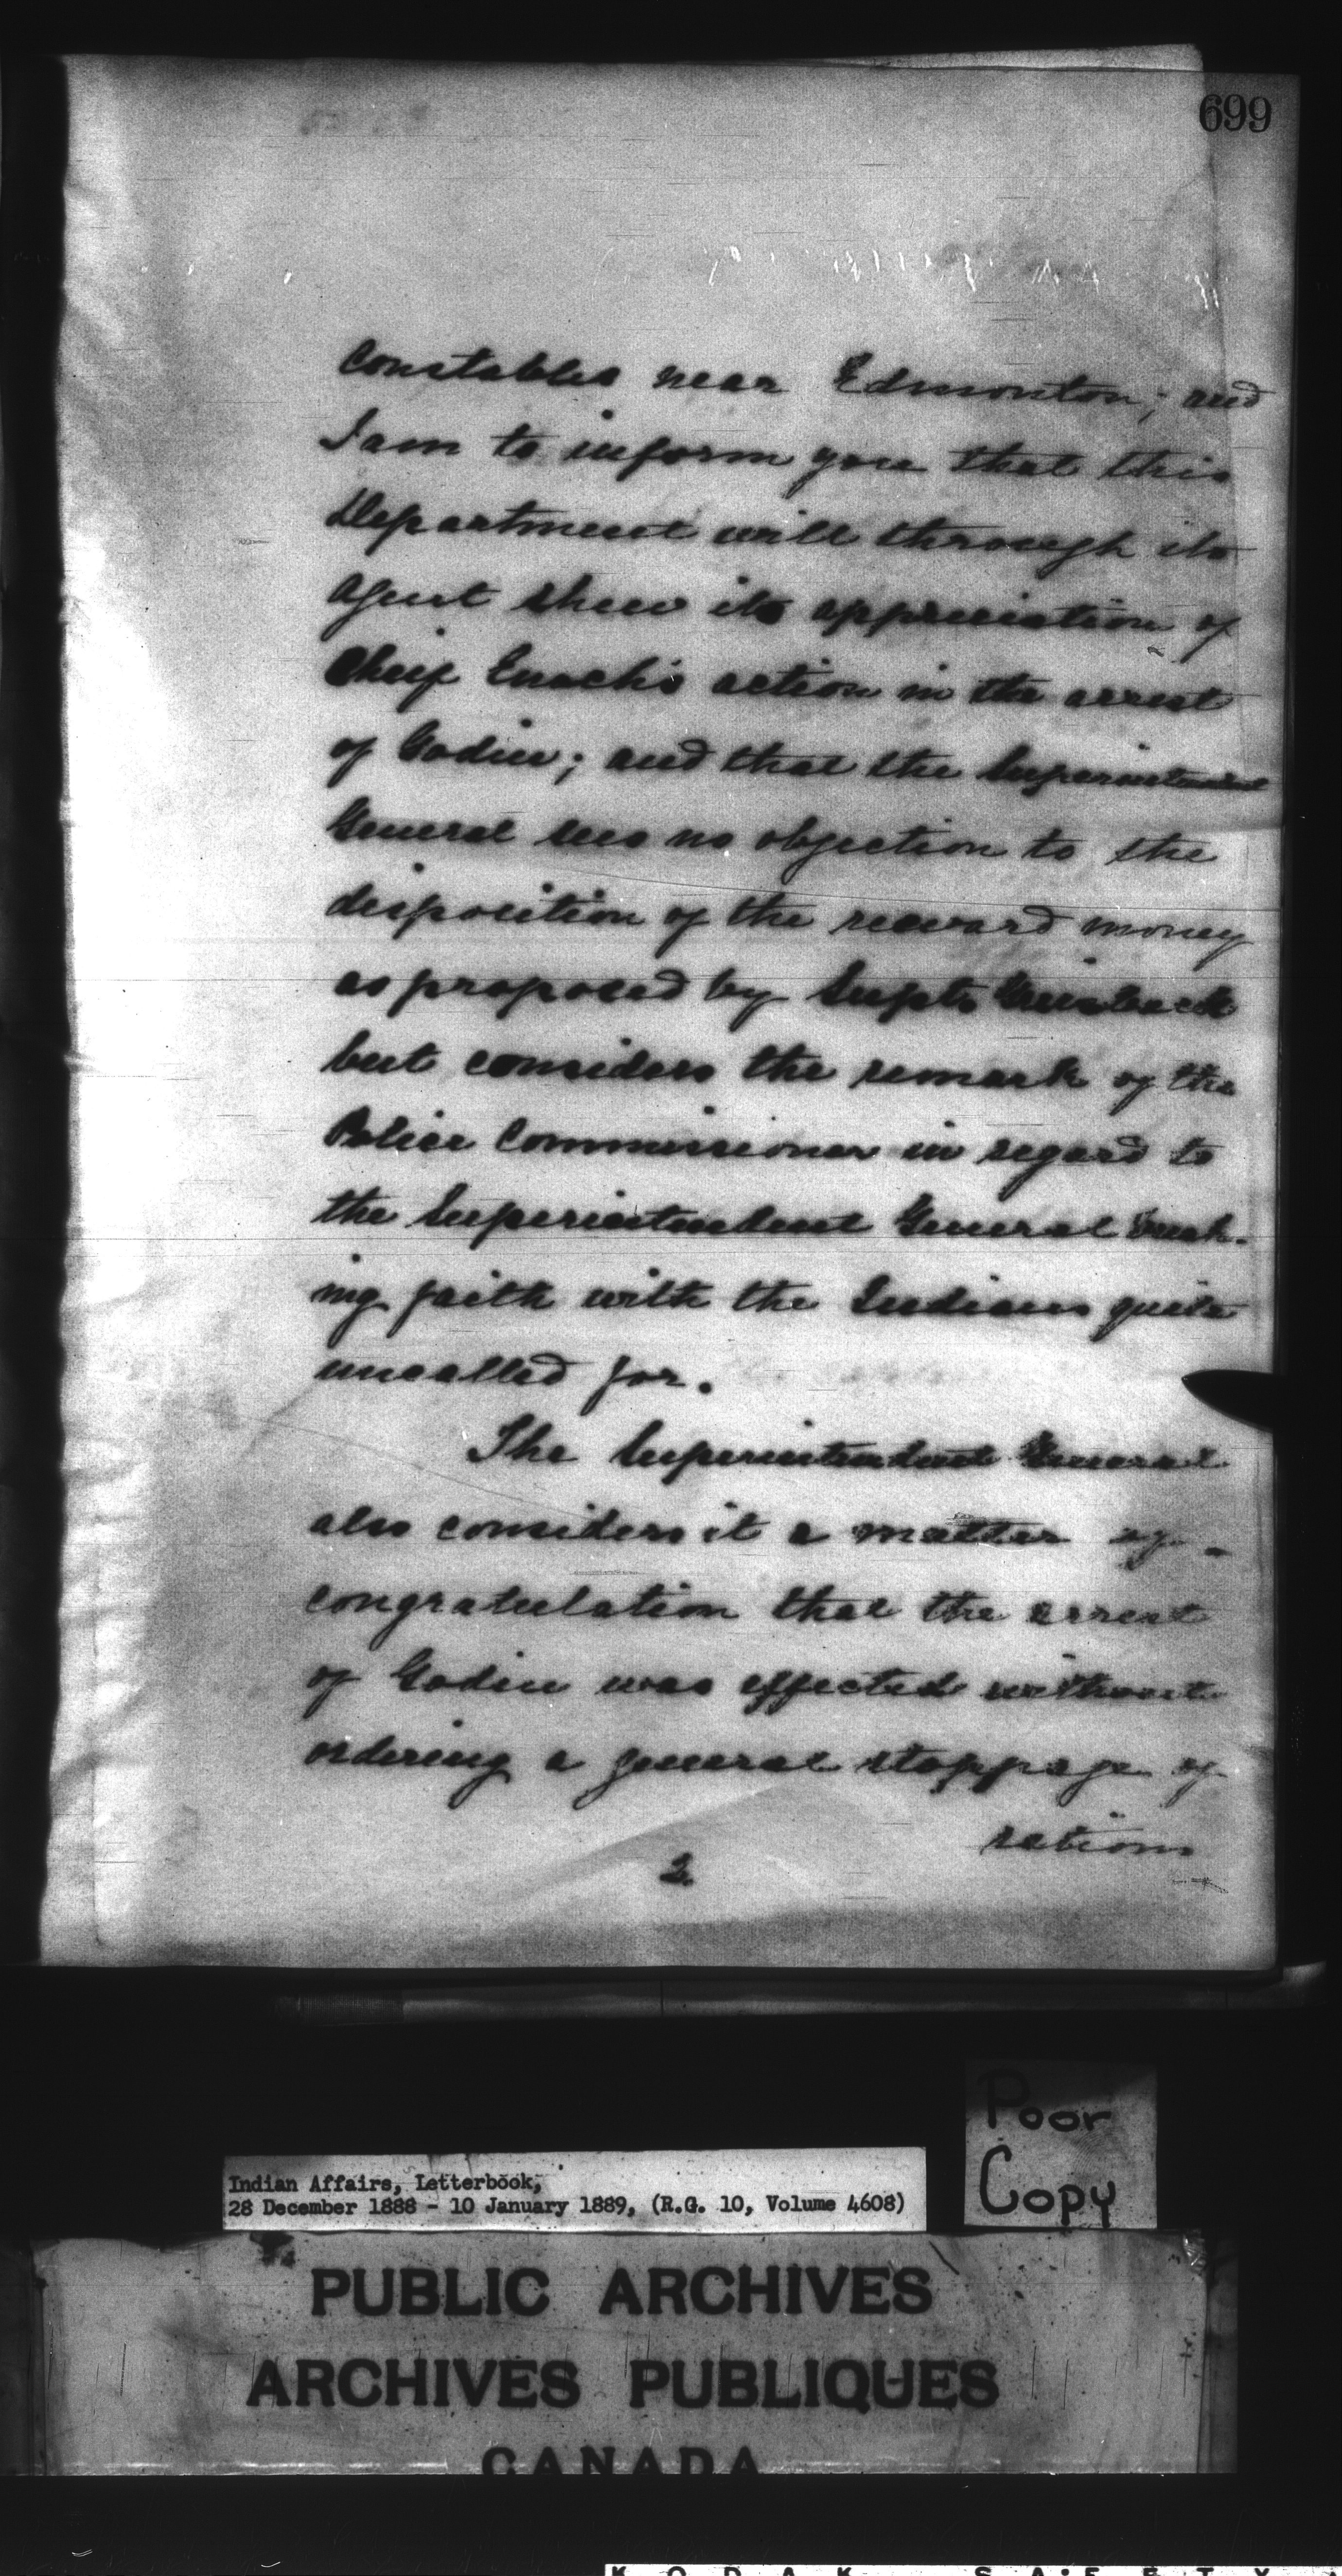 699
constables near Edmonton; and
I am to inform you that this
Department will through its
Agent shew its appreciation of
Chief Enoch's action in the arrest
of Godin; and that the Superintendent
General sees no objection to the
disposition of the reward money
as proposed by Supt. Griesbach
but considers the remark of the
Police Commissioner in regard to
the Superintendent General break-
ing faith with the Indians quite
uncalled for.
The Superintendent General
also considers it a matter of
congratulation that the arrest
of Godin was effected without
ordering a general stoppage of
rations
2.
Poor
Copy
Indian Affairs, Letterbook,
28 December 1888 - 10 January 1889, (R.G. 10, Volume 4608)
PUBLIC ARCHIVES
ARCHIVES PUBLIQUES
CANADA
KODAK SAFETY